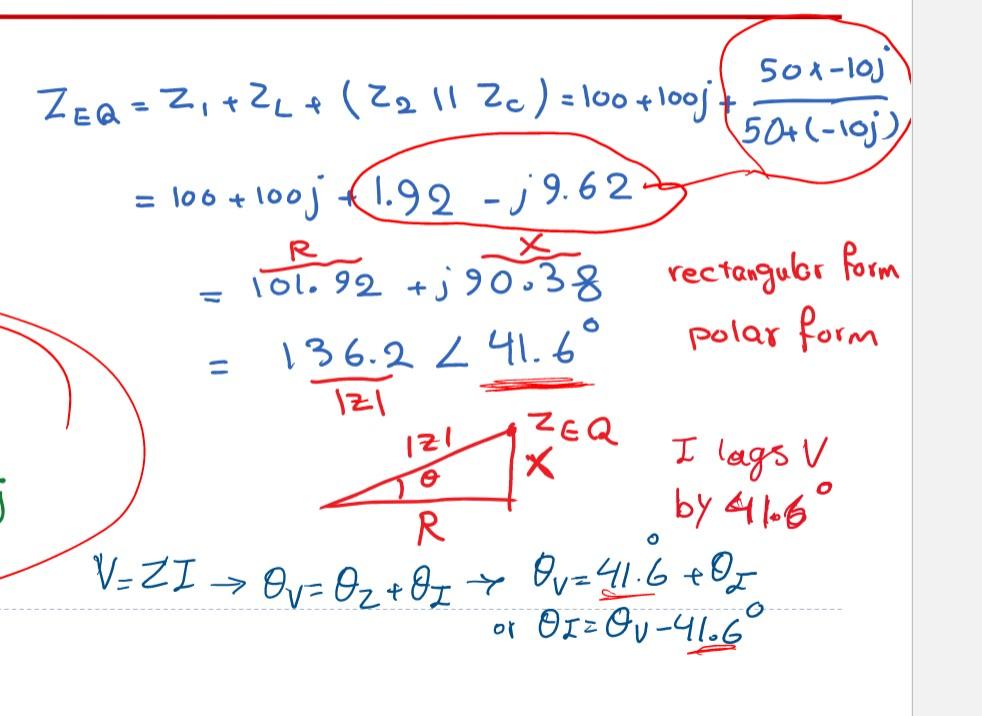 Z_EQ = Z_1 + Z_L + (Z_2 || Z_C) = 100 + 100j + (50 x -10j) / (50 + (-10j))
= 100 + 100j + 1.92 - j9.62
R X
= 101.92 + j90.38 rectangular form
= 136.2 ∠ 41.6° polar form
|Z|
|Z| Z_EQ
θ X I lags V
R by 41.6°
j
V = ZI → θ_V = θ_Z + θ_I → θ_V = 41.6° + θ_I
or θ_I = θ_V - 41.6°